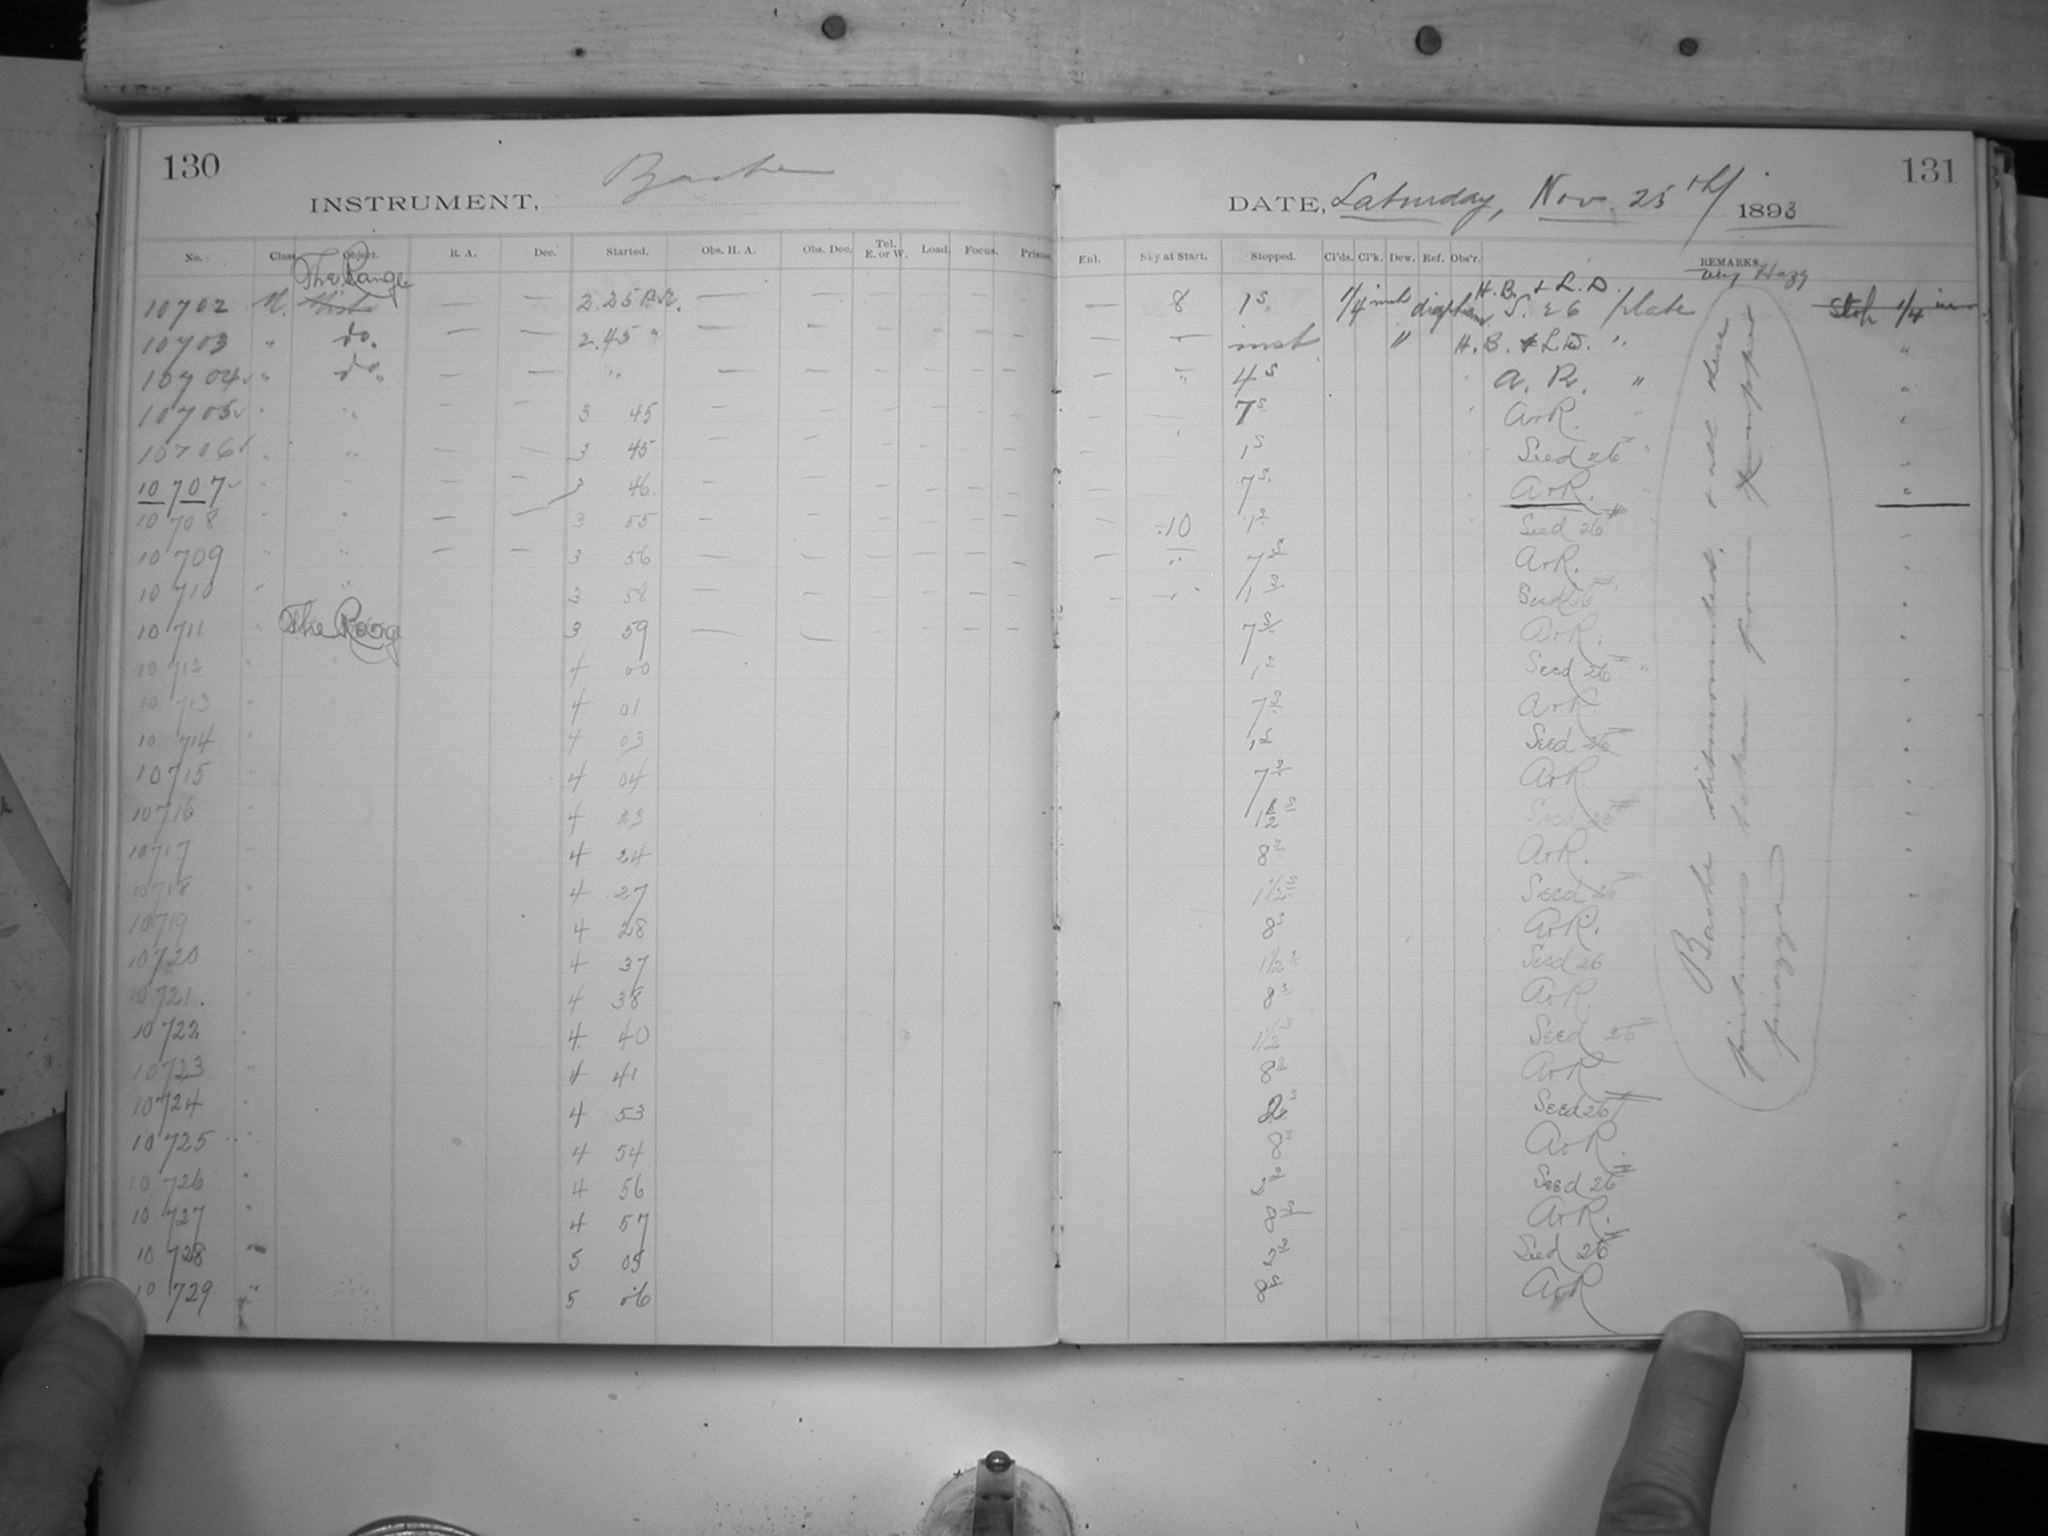 130
INSTRUMENT, Bache
No. Class. Object. R. A. Dec. Started. Obs. H. A. Obs. Dec. Tel. E. or W. Load. Focus. Prisms.
The Range
10702 2.25
10703 " do. — — 2.45 "
10704 " do. — — "
10705 " " 3 45
10706 " " 3 45
10707 3 46
10708 3 55
10709 " " 3 56
10710 " " 3 58
10711 The Range 3 59
10712 " 4 00
10713 " 4 01
10714 " 4 03
10715 " 4 04
10716 " 4 23
10717 " 4 24
10718 " 4 27
10719 " 4 28
10720 " 4 37
10721 " 4 38
10722 " 4 40
10723 " 4 41
10724 " 4 53
10725 " 4 54
10726 " 4 56
10727 " 4 57
10728 " 5 05
10729 " 5 06
131
DATE, Saturday, Nov. 25th/ 1893
Enl. Sky at Start. Stopped. Cl'ds. Cl'k. Dew. Ref. Obs'r. REMARKS.
Very Hazy
H. B. & L. D.
— 8 1s 1/4 inch S. 26 plate Stop 1/4 in
— — inst " H. B. & L. D. " "
— " 4s A. R. " "
7s A. R.
1s Seed 26
7s A. R. "
10 1s Seed 26
— " 7s A. R.
1s Seed 26
7s A. R.
1s Seed 26 "
7s A. R.
1s Seed 26
7s A. R.
1 1/2s Seed 26
8s A. R.
1 1/2s Seed 26
8s A. R.
1 1/2s Seed 26
8s A. R.
1 1/2s Seed 26
8s A. R.
2s Seed 26
8s A. R.
2s Seed 26
8s A. R.
2s Seed 26
8s A. R.
Bache dismounted, & all these
pictures taken from upper
piazza